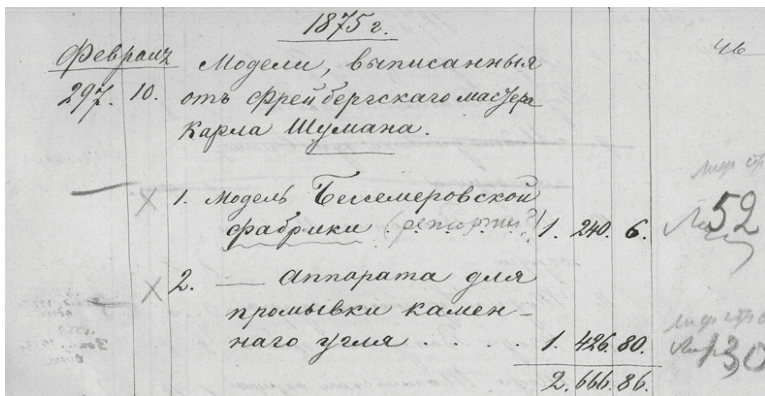 1875 г.
Февраль
46
Модели, выписанныя
297. 10. отъ Фрейбергскаго мастера
Карла Шумана.
1. Модель Бессемеровской
фабрики . . (реторты?) . 1. 240. 6.
52
2. — Аппарата для
промывки камен-
наго угля . . . . . 1. 426. 80.
130
2. 666. 86.